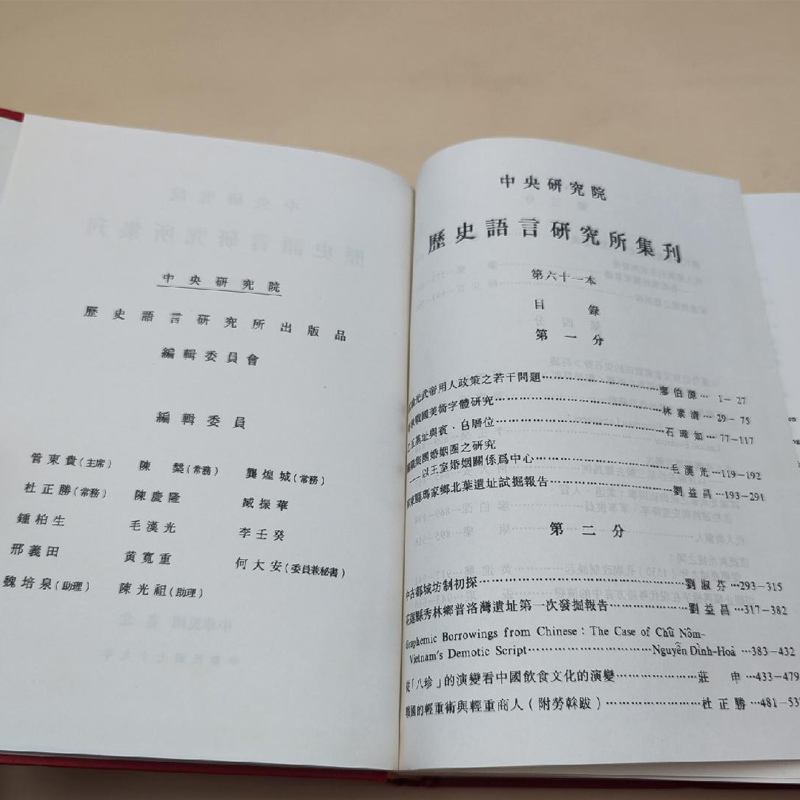 中央研究院
歷史語言研究所出版品
編輯委員會
編輯委員
管東貴(主席) 陳槃(常務) 龔煌城(常務)
杜正勝(常務) 陳慶隆 臧振華
鍾柏生 毛漢光 李壬癸
邢義田 黃寬重 何大安(委員兼秘書)
魏培泉(助理) 陳光祖(助理)
中央研究院
歷史語言研究所集刊
第六十一本
目錄
第一分
光武帝用人政策之若干問題……廖伯源… 1-27
戰國美術字體研究……林素清…29-75
址與賓、自層位……石璋如…77-117
集團婚姻圈之研究
——以王室婚姻關係爲中心……毛漢光…119-192
縣瑪家鄉北葉遺址試掘報告……劉益昌…193-291
第二分
中古都城坊制初探……劉淑芬…293-315
花蓮縣秀林鄉普洛灣遺址第一次發掘報告……劉益昌…317-382
Graphemic Borrowings from Chinese: The Case of Chữ Nôm-
Vietnam's Demotic Script……Nguyễn Đình-Hoà…383-432
從「八珍」的演變看中國飲食文化的演變……莊申…433-479
戰國的輕重術與輕重商人(附勞榦跋)……杜正勝…481-53